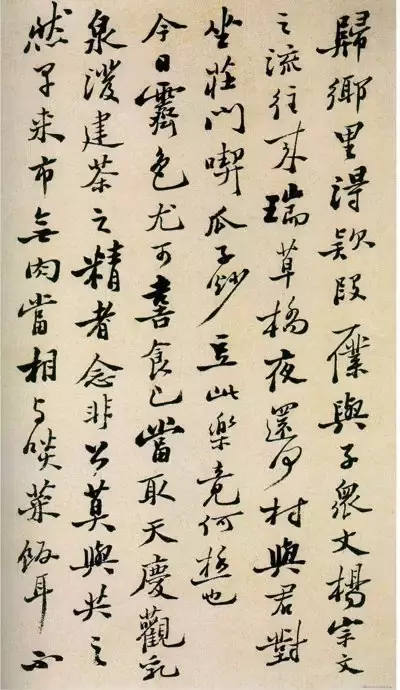 歸鄉里得款段一僕與子衆丈楊宗文
之流往來瑞草橋夜還何村與君對
坐莊門喫瓜子炒豆此樂竟何極也
今日霽色尤可喜食已當取天慶觀乳
泉潑建茶之精者念非公莫與共之
然早來市無肉當相與啖菜飯耳不